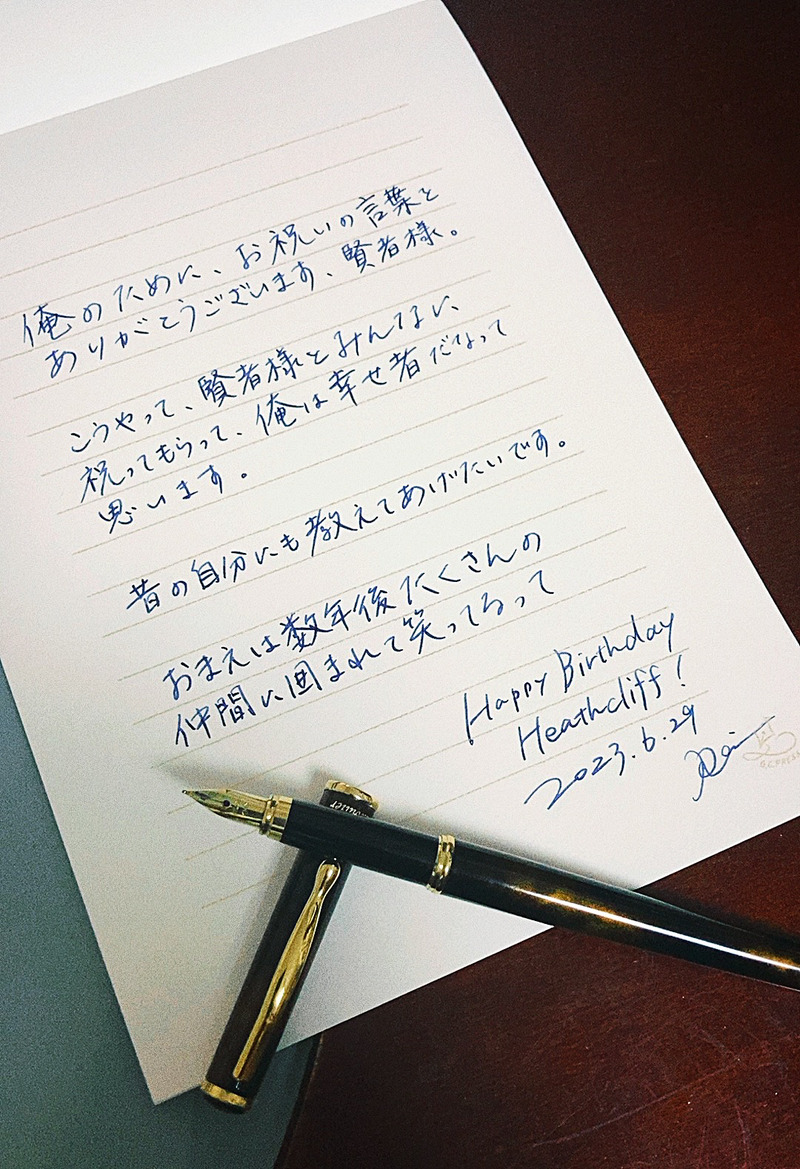 俺のために、お祝いの言葉と
ありがとうございます、賢者様。
こうやって、賢者様とみんなに、
祝ってもらって、俺は幸せ者だなって
思います。
昔の自分にも教えてあげたいです。
おまえは数年後たくさんの
仲間に囲まれて笑ってるって
Happy Birthday
Heathcliff!
2023.6.29
G.C.PRESS